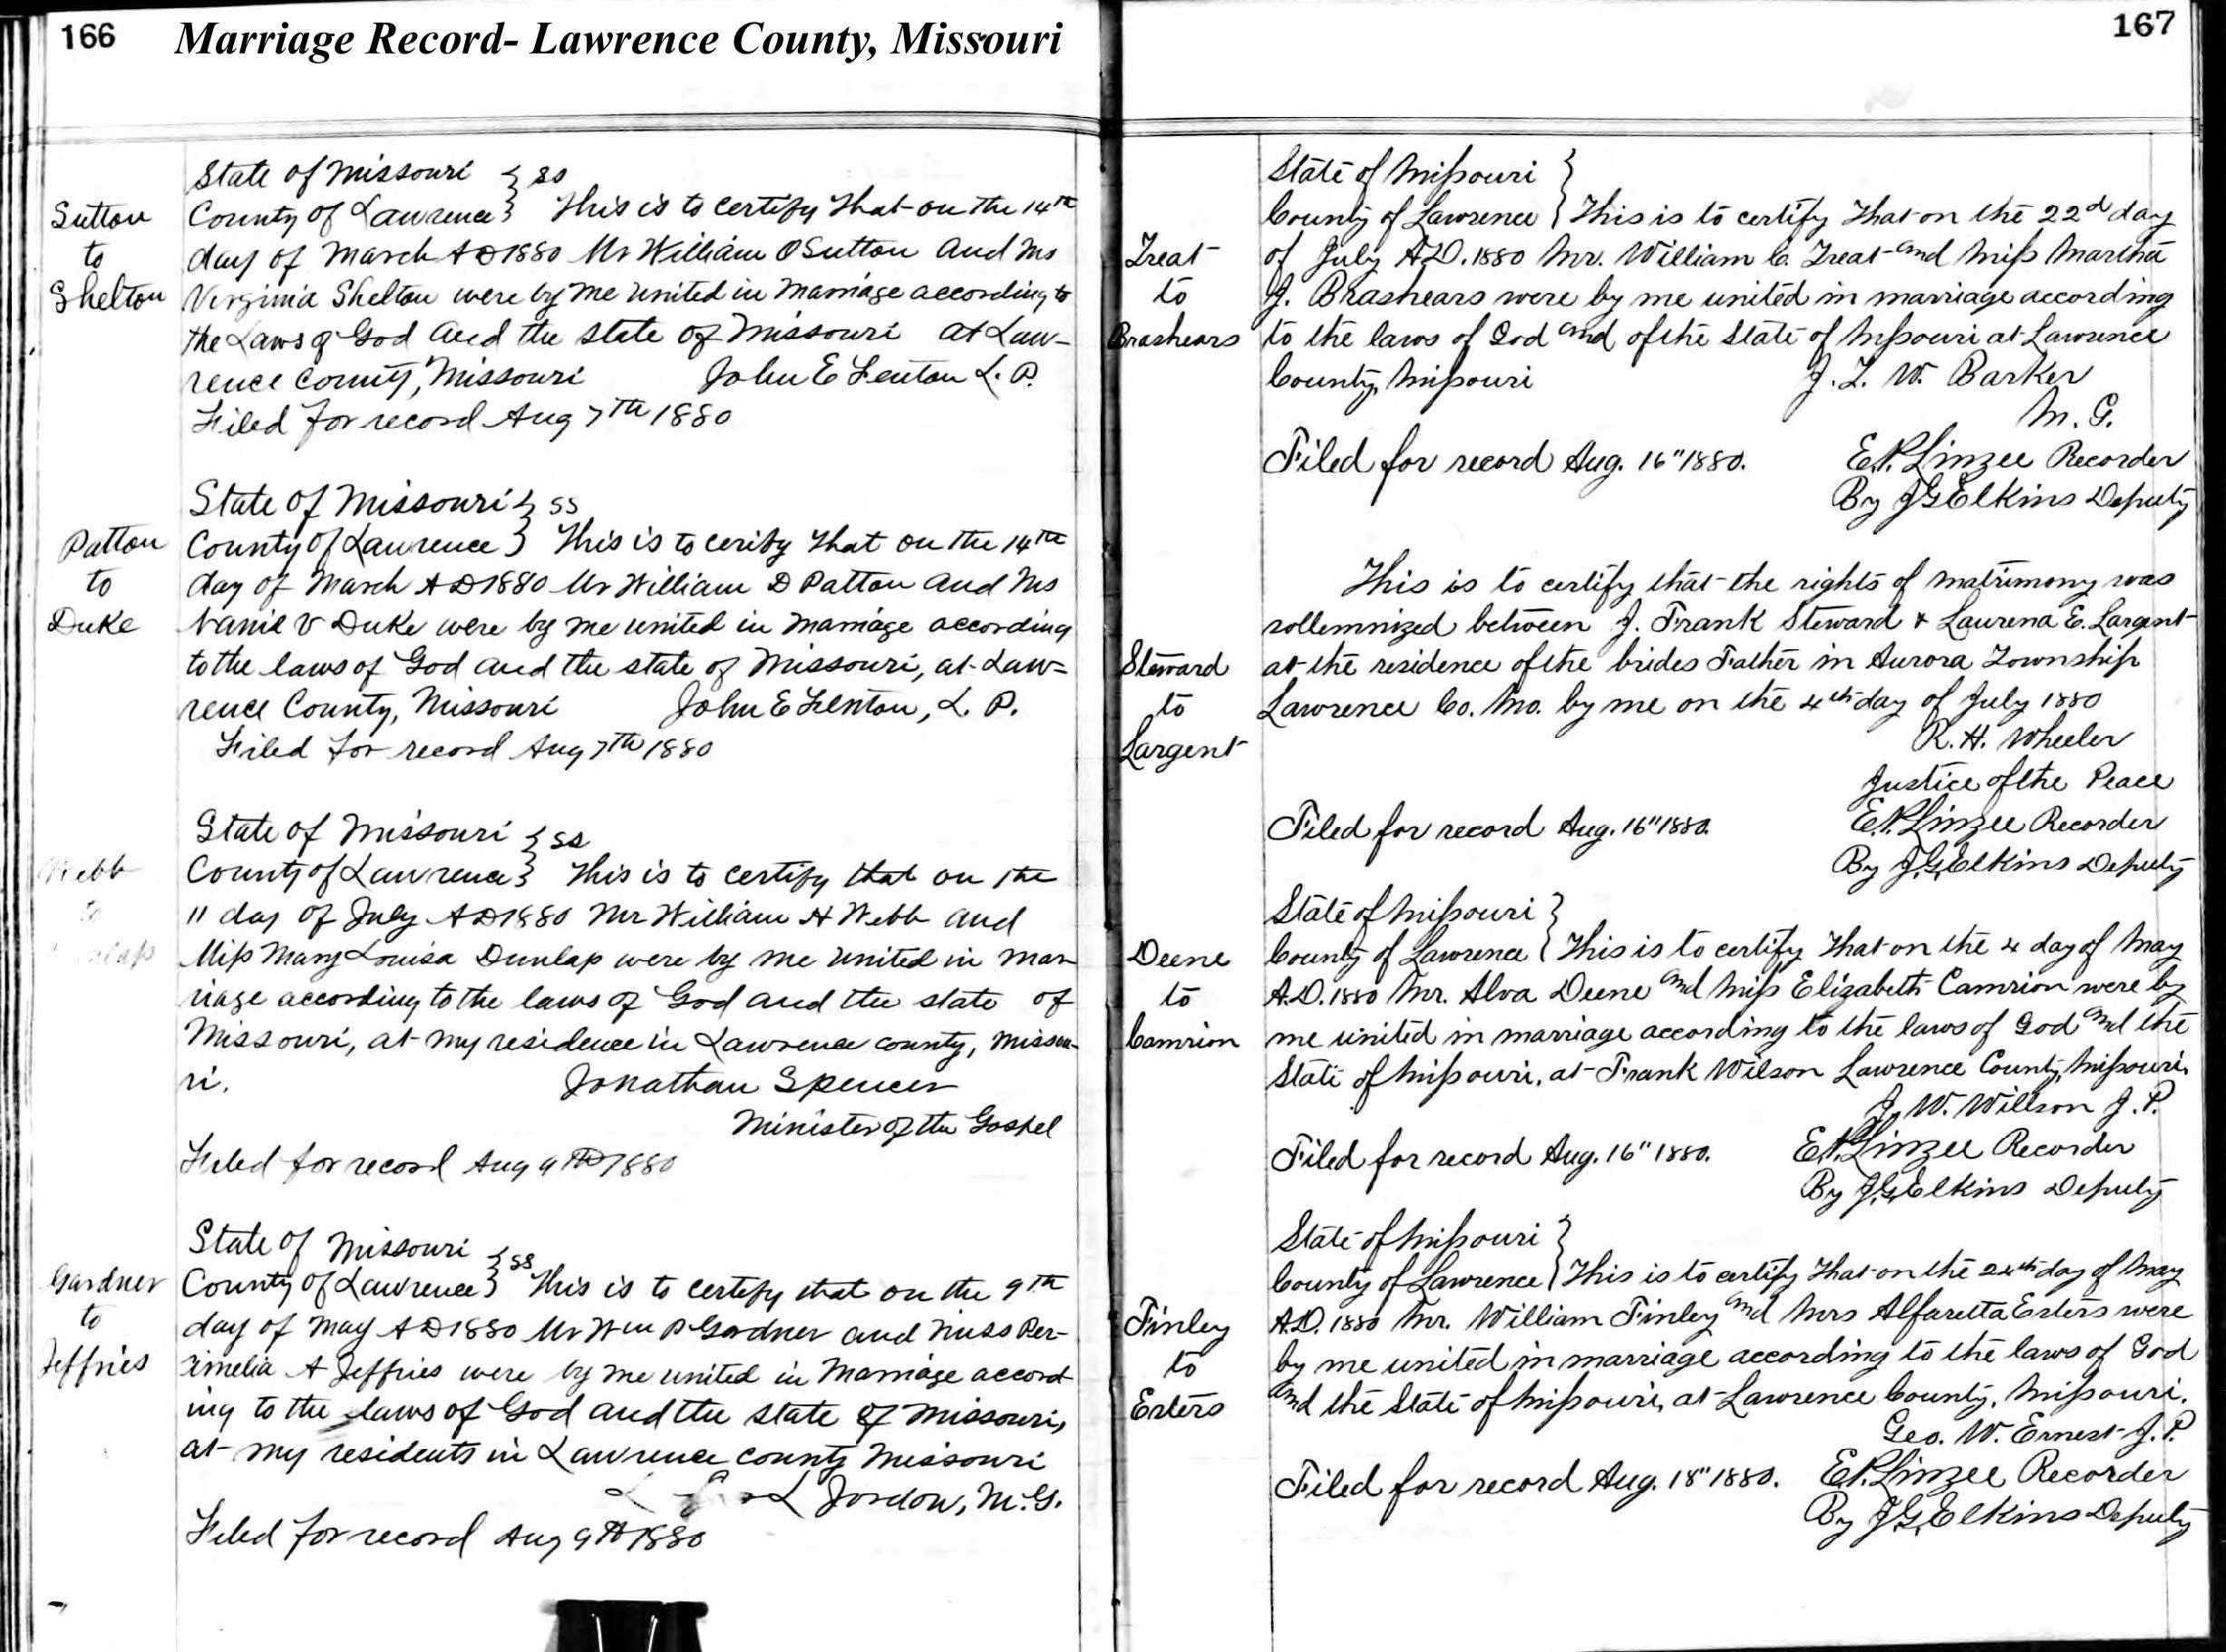 166 Marriage Record- Lawrence County, Missouri
State of Missouri } ss
Sutton County of Lawrence } This is to certify that on the 14th
to day of March AD 1880 Mr William O Sutton and Ms
Shelton Virginia Shelton were by me united in Marriage according to
the Laws of God and the state of Missouri at Law-
rence County, Missouri John E Fenton L. P.
Filed for record Aug 7th 1880
State of Missouri } ss
Patton County of Lawrence } This is to cerify that on the 14th
to day of March AD 1880 Mr William D Patton and Ms
Duke Nanie V Duke were by me united in Marriage according
to the laws of God and the state of Missouri, at Law=
rence County, Missouri John E Fenton, L. P.
Filed for record Aug 7th 1880
State of Missouri } ss
Webb County of Lawrence } This is to certify that on the
to 11 day of July AD 1880 Mr William H Webb and
Miss Mary Louisa Dunlap were by me united in mar
riage according to the laws of God and the state of
Missouri, at my residence in Lawrence county, Missou-
ri. Jonathan Spencer
Minister of the Gospel
Filed for record Aug 9th 1880
State of Missouri } ss
Gardner County of Lawrence } This is to certify that on the 9th
to day of May AD 1880 Mr Wm P Gardner and Miss Per-
Jeffries imelia A Jeffries were by me united in Marriage accord
ing to the laws of God and the state of Missouri,
at my residents in Lawrence county Missouri
Jordon, M. G.
Filed for record Aug 9th 1880
167
State of Missouri }
County of Lawrence } This is to certify that on the 22d day
Treat of July A.D. 1880 Mr. William C. Treat and Miss Martha
to J. Brashears were by me united in marriage according
Brashears to the laws of God and of the State of Missouri at Lawrence
County, Missouri J. T. W. Barker
M. G.
Filed for record Aug. 16" 1880. E.P. Linzee Recorder
By J G Elkins Deputy
This is to certify that the rights of matrimony was
sollemnized between J. Frank Steward & Laurena E. Largent
Steward at the residence of the brides Father in Aurora Township
to Lawrence Co. Mo. by me on the 4th day of July 1880
Largent R. H. Wheeler
Justice of the Peace
Filed for record Aug. 16" 1880. E.P. Linzee Recorder
By J.G. Elkins Deputy
State of Missouri }
Deene County of Lawrence } This is to certify that on the 4 day of May
to A.D. 1880 Mr. Alva Deene and Miss Elizabeth Camrion were by
Camrion me united in marriage according to the laws of God and the
State of Missouri, at Frank Wilson Lawrence County, Missouri.
J. W. Willson J. P.
Filed for record Aug. 16" 1880. E.P. Linzee Recorder
By J.G. Elkins Deputy
State of Missouri }
County of Lawrence } This is to certify that on the 24th day of May
Finley A.D. 1880 Mr. William Finley and Mrs Alfaretta Esters were
to by me united in marriage according to the laws of God
Esters and the State of Missouri, at Lawrence County, Missouri.
Geo. W. Ernest J. P.
Filed for record Aug. 18" 1880. E.P. Linzee Recorder
By J.G. Elkins Deputy